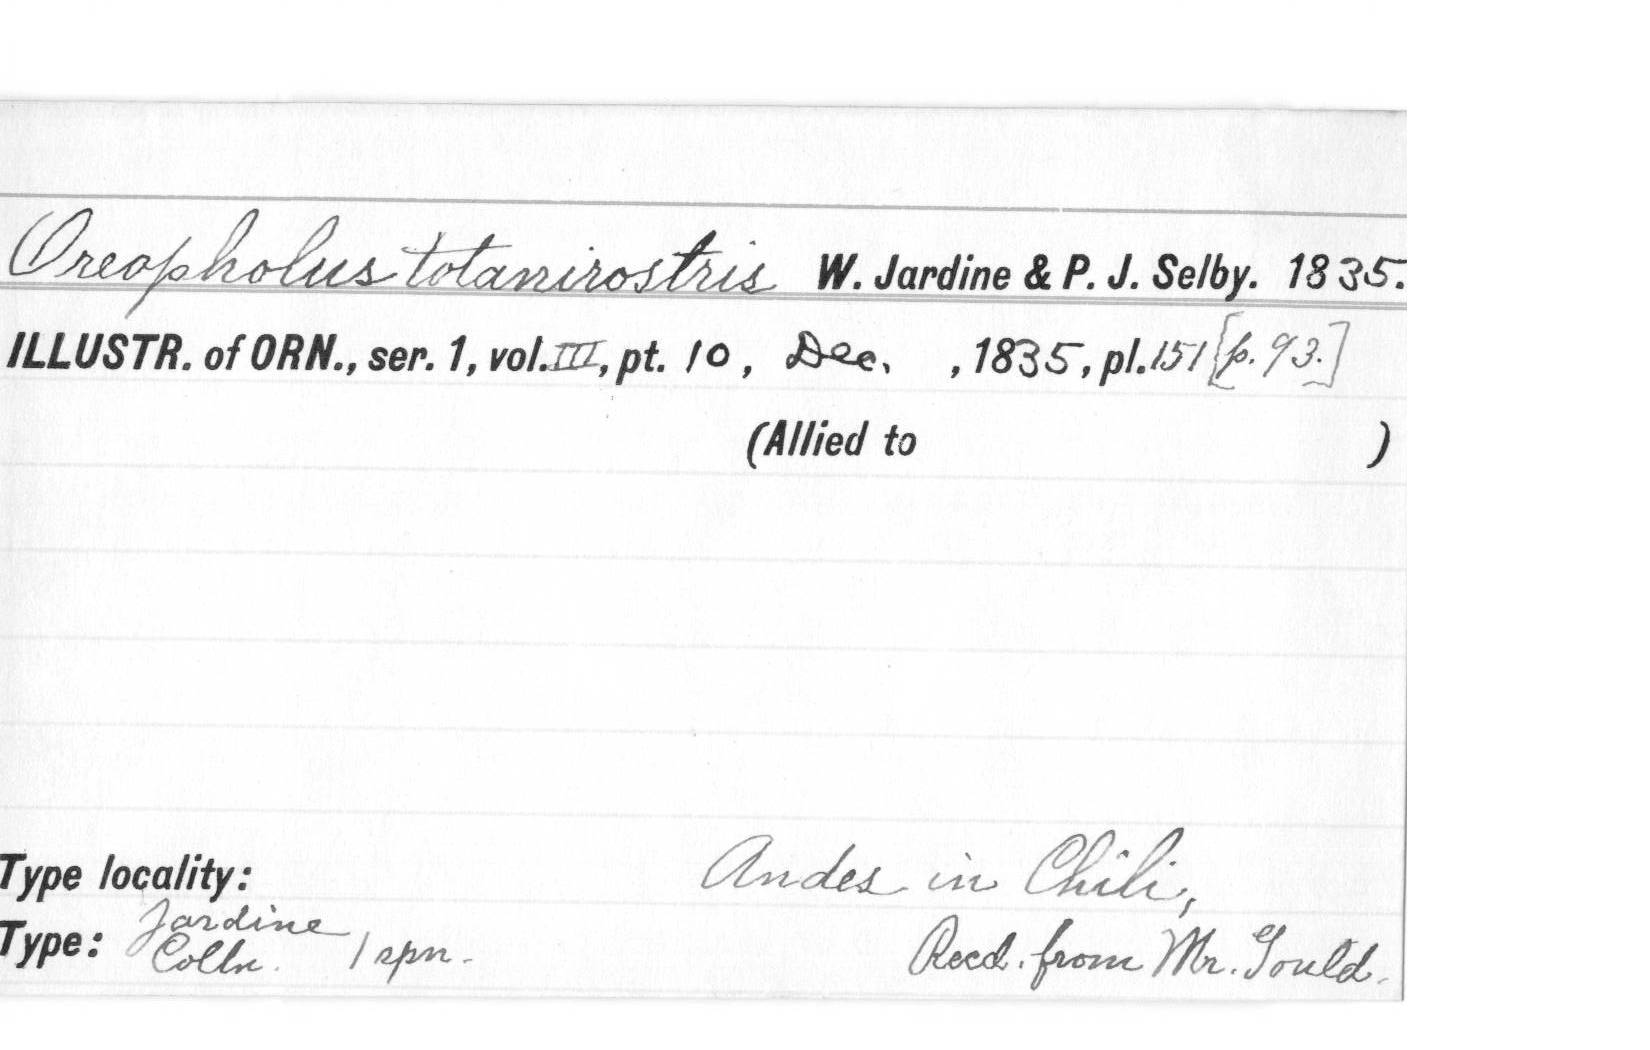 Oreopholus totanirostris W. Jardine & P. J. Selby. 1835.
ILLUSTR. of ORN., ser. 1, vol. III, pt. 10, Dec. , 1835, pl. 151 [p. 93.]
(Allied to )
Type locality: Andes in Chili,
Type: Jardine Colln. 1 spn. Recd. from Mr. Gould.